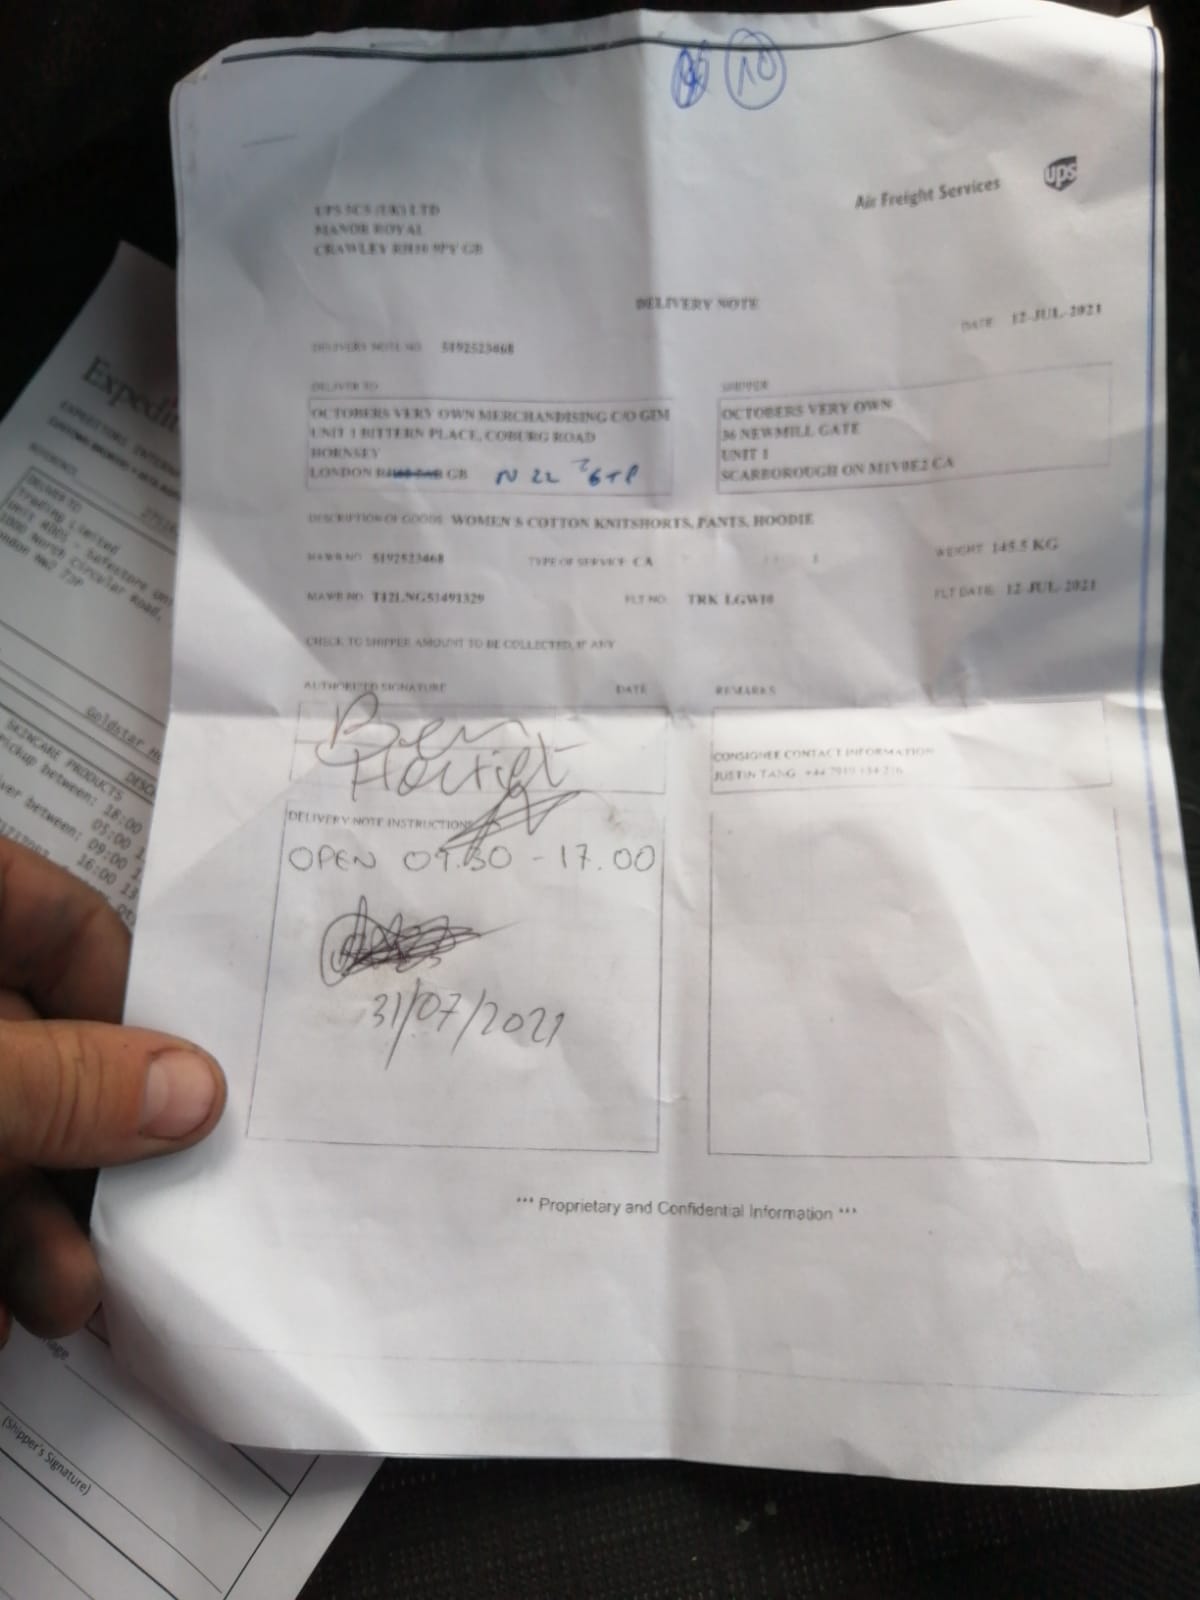 10
Air Freight Services
ups
UPS SCS (UK) LTD
MANOR ROYAL
CRAWLEY RH10 9PY GB
DELIVERY NOTE
DATE 12-JUL-2021
DELIVERY NOTE NO 5192523468
DELIVER TO
OCTOBERS VERY OWN MERCHANDISING C/O GIM
UNIT 1 BITTERN PLACE, COBURG ROAD
HORNSEY
LONDON GB N 22 6TP
SHIPPER
OCTOBERS VERY OWN
36 NEWMILL GATE
UNIT 1
SCARBOROUGH ON M1V0E2 CA
DESCRIPTION OF GOODS: WOMEN'S COTTON KNITSHORTS, PANTS, HOODIE
HAWB NO 5192523468 TYPE OF SERVICE: CA
WEIGHT 145.5 KG
MAWB NO T12LNG51491329 FLT NO: TRK LGW10 FLT DATE: 12-JUL-2021
CHECK TO SHIPPER AMOUNT TO BE COLLECTED, IF ANY
AUTHORIZED SIGNATURE DATE
REMARKS
Ben
CONSIGNEE CONTACT INFORMATION
JUSTIN TANG
DELIVERY NOTE INSTRUCTIONS
OPEN 09.30 - 17.00
31/07/2021
*** Proprietary and Confidential Information ***
Expedit
REFERENCE
DELIVER TO
Trading Limited
Unit 4001 - Safestore
1000 North Circular Road,
London NW2 7JP
Goldstar
SKINCARE PRODUCTS
Pickup between: 18:00
05:00
09:00
16:00
(Shipper's Signature)